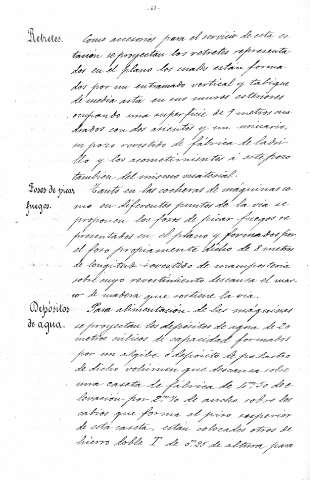 Retretes.
Como accesorios para el servicio de esta es
tación se proyectan los retretes representa
dos en el plano los cuales están forma
dos por un entramado vertical y tabique
de media asta en sus muros exteriores
ocupando una superficie de 9 metros cua
drados con dos asientos y un urinario,
un pozo revestido de fábrica de ladri
llo y los acometimientos á este pozo
tambien del mismo material.
Fosos de picar
fuegos.
Tanto en las cocheras de máquinas co
mo en diferentes puntos de la via se
proponen los fosos de picar fuegos re
presentados en el plano y formados por
el foso propiamente dicho de 8 metros
de longitud revestido de mampostería
sobre cuyo revestimiento descansa el mar
co de madera que sostiene la via.
Depósitos
de agua.
Para alimentacion de las máquinas
se proyectan los depósitos de agua de 20
metros cúbicos de capacidad formados
por un algibe ó depósito de palastro
de dicho volumen que descansa sobre
una caseta de fábrica de de
levacion por de ancho sobre los
cabios que forma el piso superior
de esta caseta, están colocados otros de
hierro doble T de 0m.25 de altura para